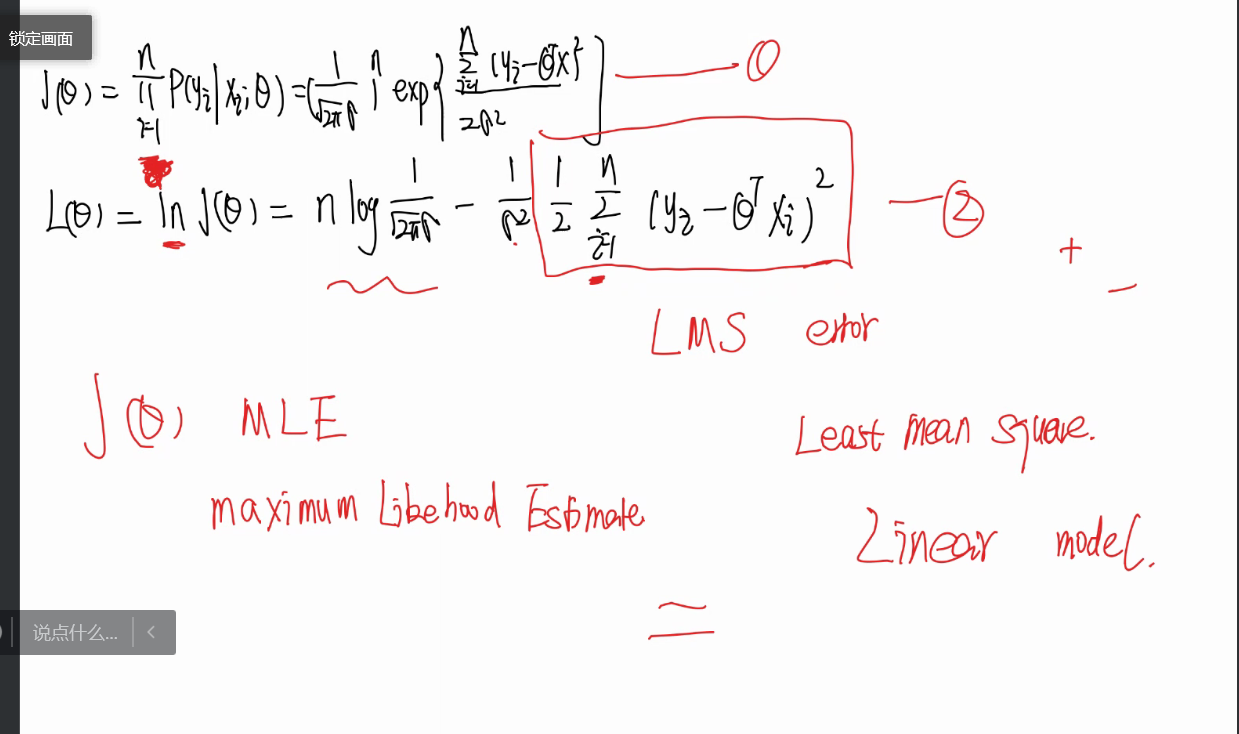 锁定画面
J(θ) = ∏_{i=1}^{n} P(y_i | x_i; θ) = (1/√(2π)σ)^n exp{ ∑_{i=1}^{n} (y_i − θ^T x)^2 / 2σ^2 } — ①
L(θ) = ln J(θ) = n log 1/√(2π)σ − 1/σ^2 1/2 ∑_{i=1}^{n} (y_i − θ^T x_i)^2 — ②
+ −
LMS error
J(θ) MLE
Least mean square.
maximum Libehood Estimate
Linear model.
说点什么...
=